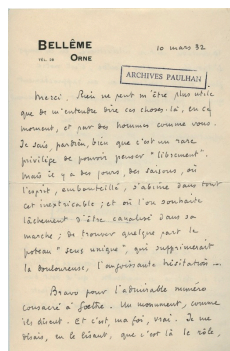 BELLÊME
TÉL. 28 ORNE
10 mars 32
ARCHIVES PAULHAN
Merci. Rien ne peut m'être plus utile
que de m'entendre dire ces choses-là, en ce
moment, et par des hommes comme vous.
Je sais, pardieu, bien que c'est un rare
privilège de pouvoir penser "librement".
Mais il y a des jours, des saisons, où
l'esprit, embouteillé, s'abîme dans tout
cet inextricable ; et où l'on souhaite
lâchement d'être canalisé dans sa
marche ; de trouver quelque part le
poteau "sens unique", qui supprimerait
la douloureuse, l'angoissante hésitation...
Bravo pour l'admirable numéro
consacré à Goethe. Un monument, comme
ils disent. Et c'est, ma foi, vrai. Je me
disais, en le lisant, que c'est là le rôle,